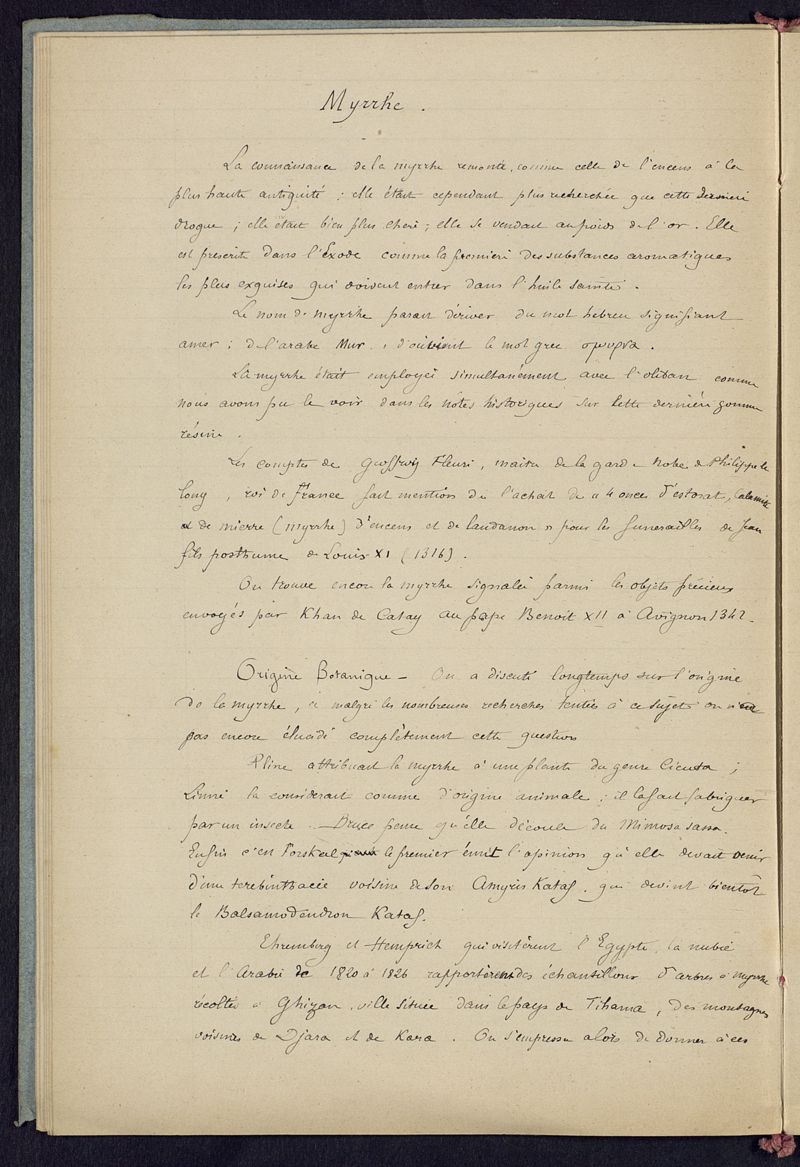 Myrrhe.
La connaissance de la myrrhe remonte, comme celle de l'encens à la
plus haute antiquité ; elle était cependant plus recherchée que cette dernière
drogue ; elle était bien plus chère ; elle se vendait au poids de l'or. Elle
est prescrite dans l'Exode comme la première des substances aromatiques
les plus exquises qui doivent entrer dans l'huile sainte.
Le nom de myrrhe parait dériver du mot hébreu signifiant
amer ; de l'arabe Mur, d'où vient le mot grec σμυρνα.
La myrrhe était employée simultanément avec l'oliban comme
nous avons pu le voir dans les notes historiques sur cette dernière gomme
résine.
Les comptes de Geoffroy Fleuri, maitre de la garde Robe de Philippe le
long, roi de france font mention de l'achat de « 4 onces d'estorat, calamite
& de mierre (myrrhe) d'encens et de laudanon » pour les funerailles de Jean
fils posthume de Louis XI (1316).
On trouve encore la myrrhe signalée parmi les objets précieux
envoyés par Khan de Catay au pape Benoit XII à Avignon 1342.
Origine Botanique — On a discuté longtemps sur l'origine
de la myrrhe, et malgré les nombreuses recherches tentées à ce sujet on n'a
pas encore élucidé complètement cette question
Pline attribuait la myrrhe à une plante du genre Cicuta ;
Linné la considérait comme d'origine animale ; il la fait fabriquer
par un insecte. Bruce pense qu'elle découle du Mimosa sassa.
Enfin c'est Forskal le premier émit l'opinion qu'elle devait venir
d'une terebinthacée voisine de son Amyris Kataf, qui devint bientôt
le Balsamodendron Kataf.
Ehremberg et Hemprich qui visitèrent l'Egypte, la nubie
et l'Arabie de 1820 à 1826 rapportèrent des échantillons d'arbres à myrrhe
récoltés à Ghizan, ville située dans le pays de Tihama, des montagnes
voisines de Djara et de Kara. On s'empressa alors de donner à ces